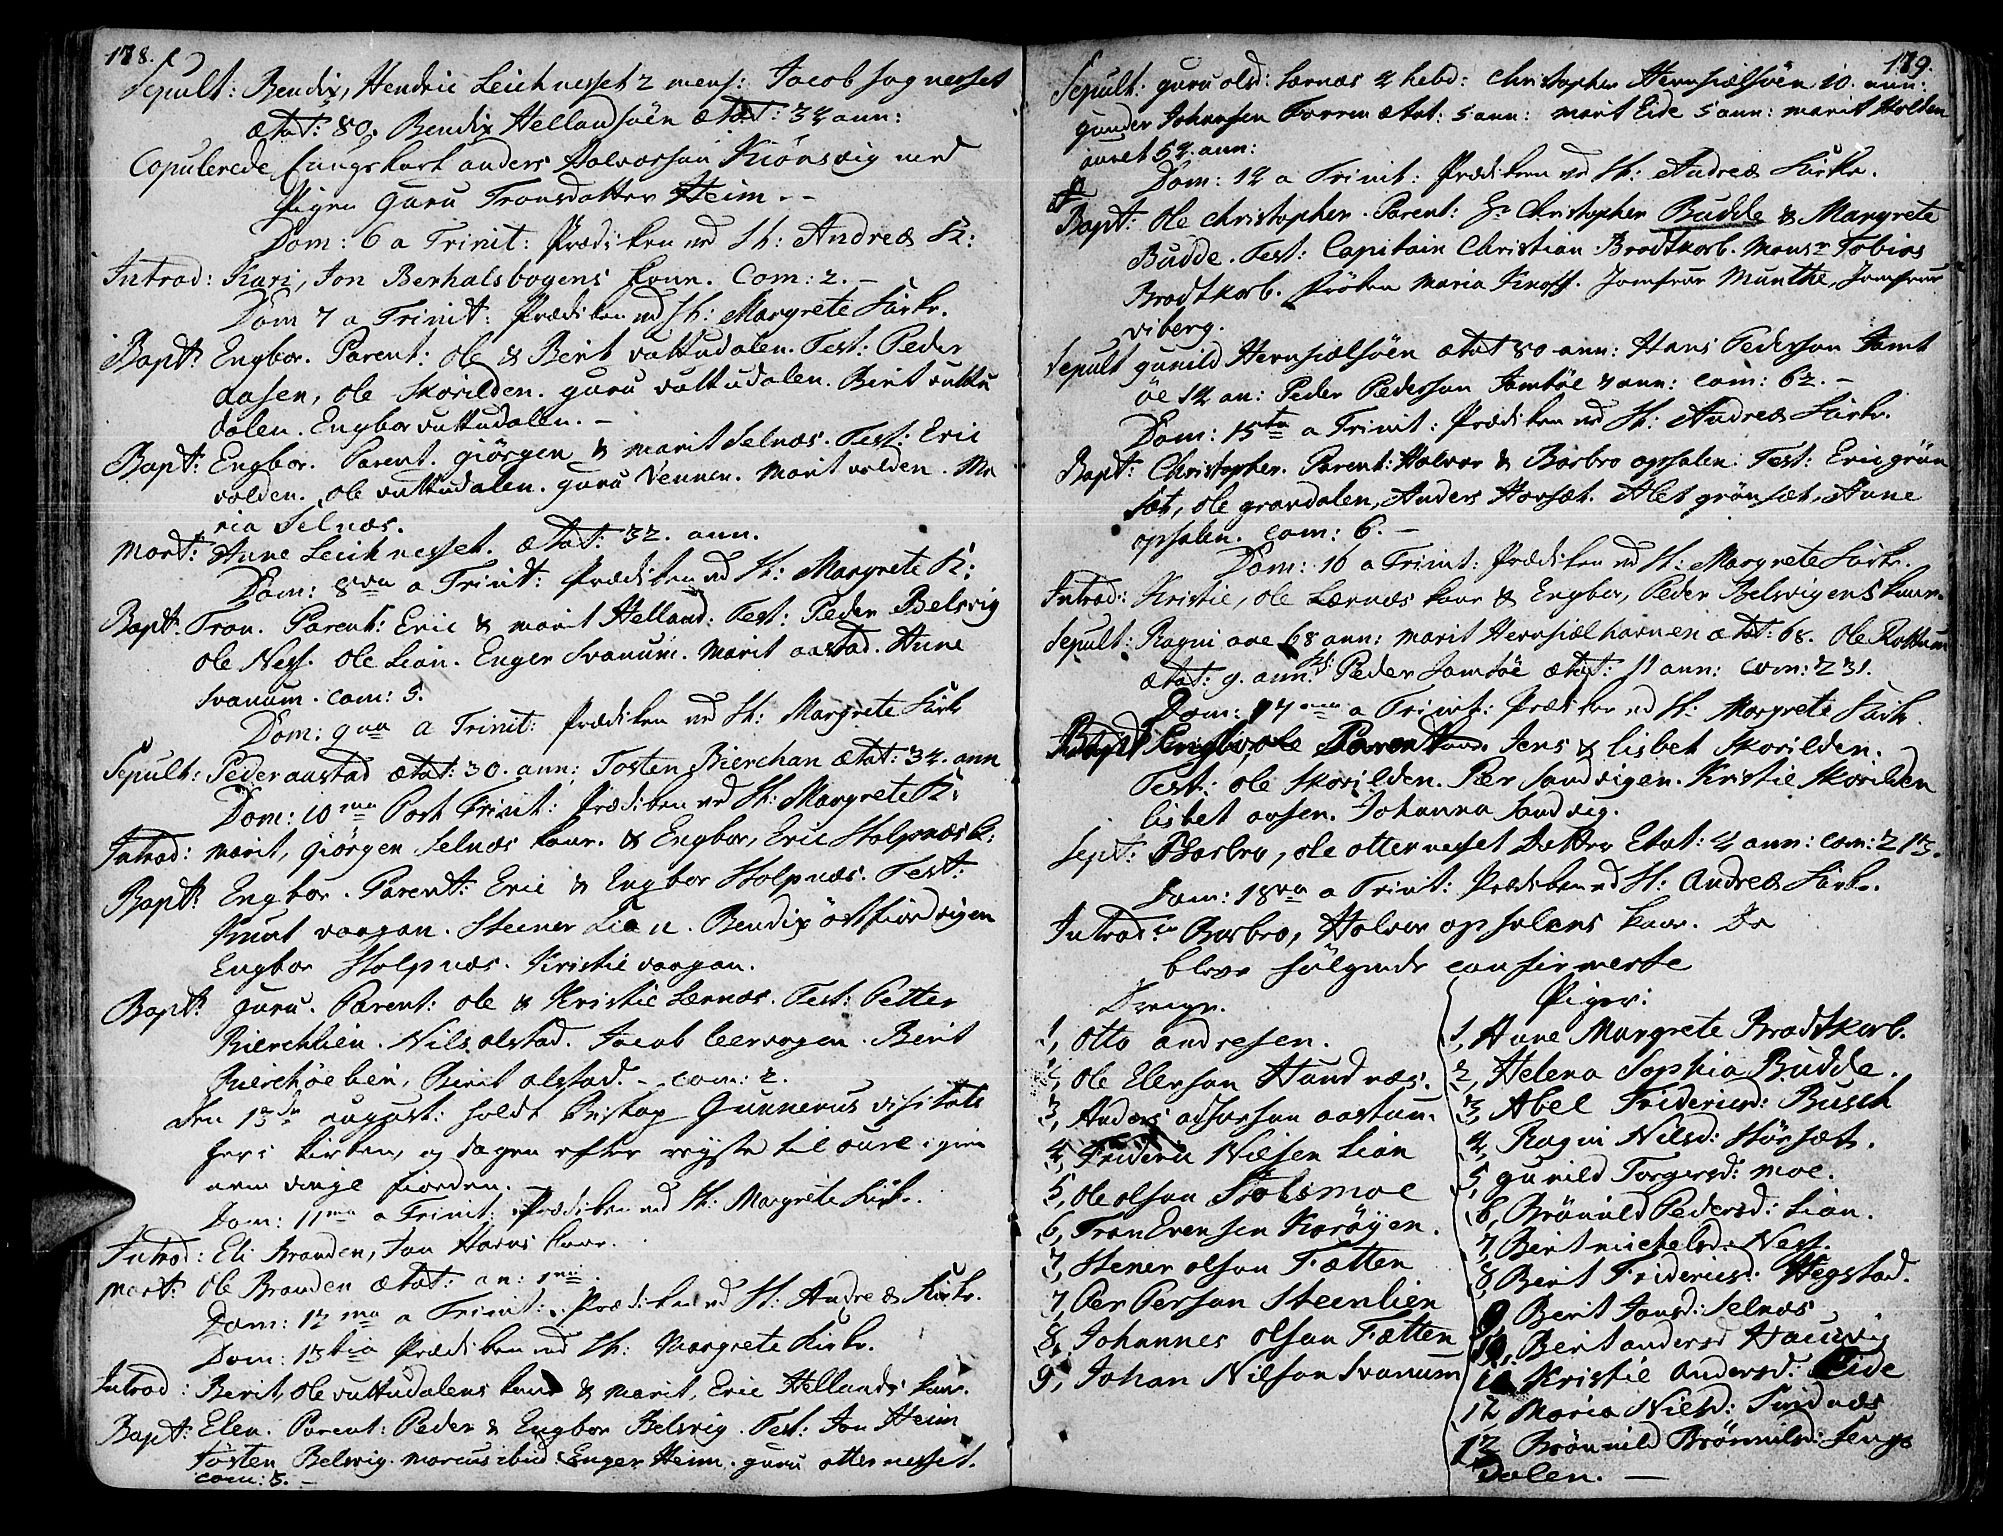 178.
Sepult: Bendix, Hendric Leichnesset 2 mens: Jacob sognesset
ætat: 80, Bendix Hellandsöen ætat: 34 ann:
Copulerede Anders Halvorsen med
Pigen Guru Tronsdatter Heim. -
Dom: 6 a Trinit: Prædiken ved St: Andreæ K:
Introd: Kari, Jon Berhalsbogens kone. Com: 2. -
Dom 7 a Trinit: Prædiken ved St: Margrete Kirke.
Bapt: Engbor. Parent: Ole & Berit vuttudalen. Test: Peder
Aasen, Ole Skorilden. guru vuttudalen. Berit vuttu
dalen. Engbor vuttudalen. -
Bapt: Engbor. Parent. giörgen & marit Selnæs. Test: Eric
volden. Ole vuttudalen. guru Vennen. Marit volden. Ma
ria Selnæs.
Mort: Anne Leichnesset. ætat: 32. ann.
Dom: 8va a Trinit: Prædiken ved St: Margrete K:
Bapt: Tron. Parent: Eric & marit Helland: Test: Peder Belsvig
Ole Ness. Ole Lian. Enger Svanum. Marit aastad. Anne
Svanum. com: 5.
Dom: 9na a Trinit: Prædiken ved St: Margrete Kirke
Sepult: Peder aastad ætat: 30. ann: Tosten Bierchan ætat: 34. ann
Dom: 10ma Post Trinit: Prædiken ved St: Margrete K:
Introd: marit, giörgen Selnæs kone. & Engbor, Eric Holpnæs k:
Bapt: Engbor. Parent: Eric & Engbor Holpnæs. Test:
Knut vaagan. Steener Lian. Bendix östfiordvigen
Engbor Holpnæs. Kristie vaagan.
Bapt: guru. Parent: Ole & Kristie Lernæs. Test: Petter
Bierchlien. Nils olstad. Jacob leervogen. Berit
lien, Berit olstad. - com: 2.
Den 13de august: holdt Biskop Gunnerus visitats
her i kirken, og dagen efter reyste til oure igien
nem vinje fiorden.
Dom: 11ma a Trinit: Prædiken ved St: Margrete Kirke.
Introd: Eli Branden, Jon Havns kone.
Mort: Ole Branden ætat: an: 1
Dom: 12ma a Trinit: Prædiken ved St: Andreæ Kirke.
Dom: 13tia Prædiken ved St: Margrete Kirke.
Introd: Berit, Ole vuttudalens kone & marit, Eric Hellands kone.
Bapt: Elen. Parent: Peder & Engbor Belsvig. Test: Jon Heim
Tosten Belsvig. marcus ibid Enger Heim. guru otternesset.
com: 5. -
179.
Sepult: guru olsd: Lernæs 4 hebd: Christopher Hernsiælsöen 10. ann:
gunder Johansen Forren ætat: 5 ann: marit Eide 5 ann: marit Holden
auret 54. ann:
Dom: 14 a Trinit: Prædiken ved St: Andreæ Kirke.
Bapt: Ole Christopher. Parent: Hr Christopher Budde & Margrete
Budde. Test: Capitain Christian Brodtkorb. Monsr Tobias
Brodtkorb. Fröken Maria Knoff. Jomfrue Munthe, Jomfrue
viberg.
Sepult gunild Hernsiælsöen ætat 80 ann: Hans Pedersen Jamt
öe 14 an: Peder Pedersen Jamtöe 7 ann: com: 62. -
Dom: 15ta a Trinit: Prædiken ved St: Andreæ Kirke.
Bapt: Christopher. Parent: Halvor & Barbro opsalen: Test: Eric grön
sæt, Ole grandalen, Anders Horsæt. Alet grönsæt, Anne
opsalen. com: 6. -
Dom: 16 a Trinit: Prædiken ved St: Margrete Kirke.
Introd: Kristie, Ole Lernæs kone & Engbor, Peder Belsvigens kone.
Sepult: Ragni 68 ann: marit Hernsiælhavnen ætat: 68. Ole Rottum
ætat: 9. ann: Peder Jamtöe ætat: 11 ann: com: 231.
Dom: 17ma a Trinit: Prædiken ved St: Margrete Kirke.
Bapt Parent Jens & lisbet Skorilden.
Test: Ole Skorilden. Peer Sandvigen. Kristie Skorilden
lisbet aasen. Johanna Sandvig.
Sept: Barbro, Ole otternesset Datter Etat: 4 ann: com: 213.
Dom: 18va a Trinit: Prædiken ved St: Andreæ Kirke.
Introd: Barbro, Halvor opsalens kone. Da
bleve fölgende confirmerte
Drenge.
1, Otto andresen.
2, Ole Elersen Hundnæs.
3, Anders aastum.
4, Frideric Nielsen Lian
5, Ole olsen Stolsmoe
6, Tron Evensen Koröyen.
7, Stener olsen Fætten
7, Peer Persen Steenlien
8, Johannes olsen Fætten
9, Johan Nilsen Svanum
Piger:
1, Anne Margrete Brodtkorb.
2, Helena Sophia Budde.
3, Abel Fridericsd: Busch
4, Ragni Nilsd: Storsæt.
5, gunild Torgersd: moe.
6, Brönild Pedersd: Lian.
7, Berit michelsd: Ness.
8, Berit Fridericsd: Hegstad.
9 Berit Jonsd: Selnæs
10, Berit andersd
11 Kristie Andersd: Eide
12 Maria Nielsd:
13 Brönild Brönnilsd: Senge
dalen. -